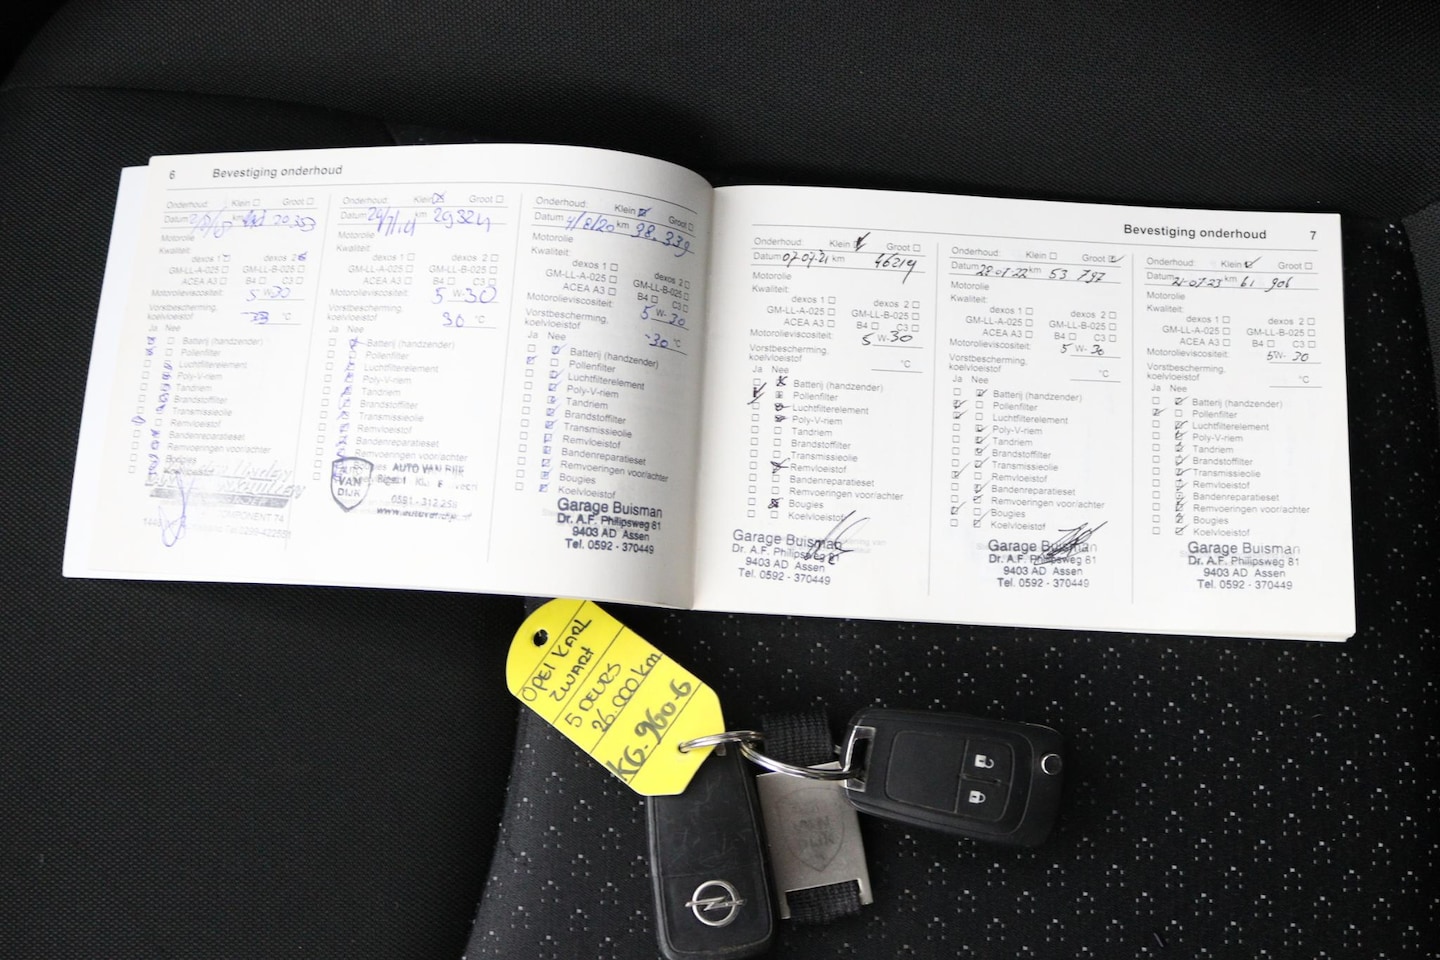 6 Bevestiging onderhoud
Onderhoud: Klein ☐ Groot ☐
Datum km 20.353
Motorolie
Kwaliteit:
dexos 1 ☐ dexos 2
GM-LL-A-025 ☐ GM-LL-B-025 ☐
ACEA A3 ☐ B4 ☐ C3 ☐
Motorolieviscositeit: 5 W-30
Vorstbescherming,
koelvloeistof °C
Ja Nee
Batterij (handzender)
Pollenfilter
Luchtfilterelement
Poly-V-riem
Tandriem
Brandstoffilter
Transmissieolie
Remvloeistof
Bandenreparatieset
Remvoeringen voor/achter
Bougies
Koelvloeistof
Onderhoud: Klein ☒ Groot ☐
Datum km 29324
Motorolie
Kwaliteit:
dexos 1 ☐ dexos 2 ☐
GM-LL-A-025 ☐ GM-LL-B-025 ☐
ACEA A3 ☐ B4 ☐ C3 ☐
Motorolieviscositeit: 5 W-30
Vorstbescherming,
koelvloeistof 30 °C
Ja Nee
Batterij (handzender)
Pollenfilter
Luchtfilterelement
Poly-V-riem
Tandriem
Brandstoffilter
Transmissieolie
Remvloeistof
Bandenreparatieset
Remvoeringen voor/achter
Bougies
VAN
DIJK
AUTO VAN DIJK
0591-312258
Onderhoud: Klein ☒ Groot ☐
Datum 4/8/20 km 38.339
Motorolie
Kwaliteit:
dexos 1 ☐ dexos 2 ☐
GM-LL-A-025 ☐ GM-LL-B-025 ☐
ACEA A3 ☐ B4 ☐ C3 ☐
Motorolieviscositeit: 5 W-30
Vorstbescherming,
koelvloeistof -30 °C
Ja Nee
Batterij (handzender)
Pollenfilter
Luchtfilterelement
Poly-V-riem
Tandriem
Brandstoffilter
Transmissieolie
Remvloeistof
Bandenreparatieset
Remvoeringen voor/achter
Bougies
Koelvloeistof
Garage Buisman
Dr. A.F. Philipsweg 61
9403 AD Assen
Tel. 0592 - 370449
Bevestiging onderhoud 7
Onderhoud: Klein ☒ Groot ☐
Datum 07-07-21 km 46219
Motorolie
Kwaliteit:
dexos 1 ☐ dexos 2 ☐
GM-LL-A-025 ☐ GM-LL-B-025 ☐
ACEA A3 ☐ B4 ☐ C3 ☐
Motorolieviscositeit: 5 W-30
Vorstbescherming,
koelvloeistof °C
Ja Nee
Batterij (handzender)
Pollenfilter
Luchtfilterelement
Poly-V-riem
Tandriem
Brandstoffilter
Transmissieolie
Remvloeistof
Bandenreparatieset
Remvoeringen voor/achter
Bougies
Koelvloeistof
Garage Buisman
Dr. A.F. Philipsweg 61
9403 AD Assen
Tel. 0592 - 370449
Onderhoud: Klein ☐ Groot ☑
Datum 28-01-22 km 53 797
Motorolie
Kwaliteit:
dexos 1 ☐ dexos 2 ☐
GM-LL-A-025 ☐ GM-LL-B-025 ☐
ACEA A3 ☐ B4 ☐ C3 ☐
Motorolieviscositeit: 5 W-30
Vorstbescherming,
koelvloeistof °C
Ja Nee
Batterij (handzender)
Pollenfilter
Luchtfilterelement
Poly-V-riem
Tandriem
Brandstoffilter
Transmissieolie
Remvloeistof
Bandenreparatieset
Remvoeringen voor/achter
Bougies
Koelvloeistof
Garage Buisman
Dr. A.F. Philipsweg 61
9403 AD Assen
Tel. 0592 - 370449
Onderhoud: Klein ☑ Groot ☐
Datum 21-07-23 km 61 906
Motorolie
Kwaliteit:
dexos 1 ☐ dexos 2 ☐
GM-LL-A-025 ☐ GM-LL-B-025 ☐
ACEA A3 ☐ B4 ☐ C3 ☐
Motorolieviscositeit: 5W-30
Vorstbescherming,
koelvloeistof °C
Ja Nee
Batterij (handzender)
Pollenfilter
Luchtfilterelement
Poly-V-riem
Tandriem
Brandstoffilter
Transmissieolie
Remvloeistof
Bandenreparatieset
Remvoeringen voor/achter
Bougies
Koelvloeistof
Garage Buisman
Dr. A.F. Philipsweg 61
9403 AD Assen
Tel. 0592 - 370449
OPEl KARL
ZWART
5 DEURS
26.000 km
KG.960-G
VAN
DIJK